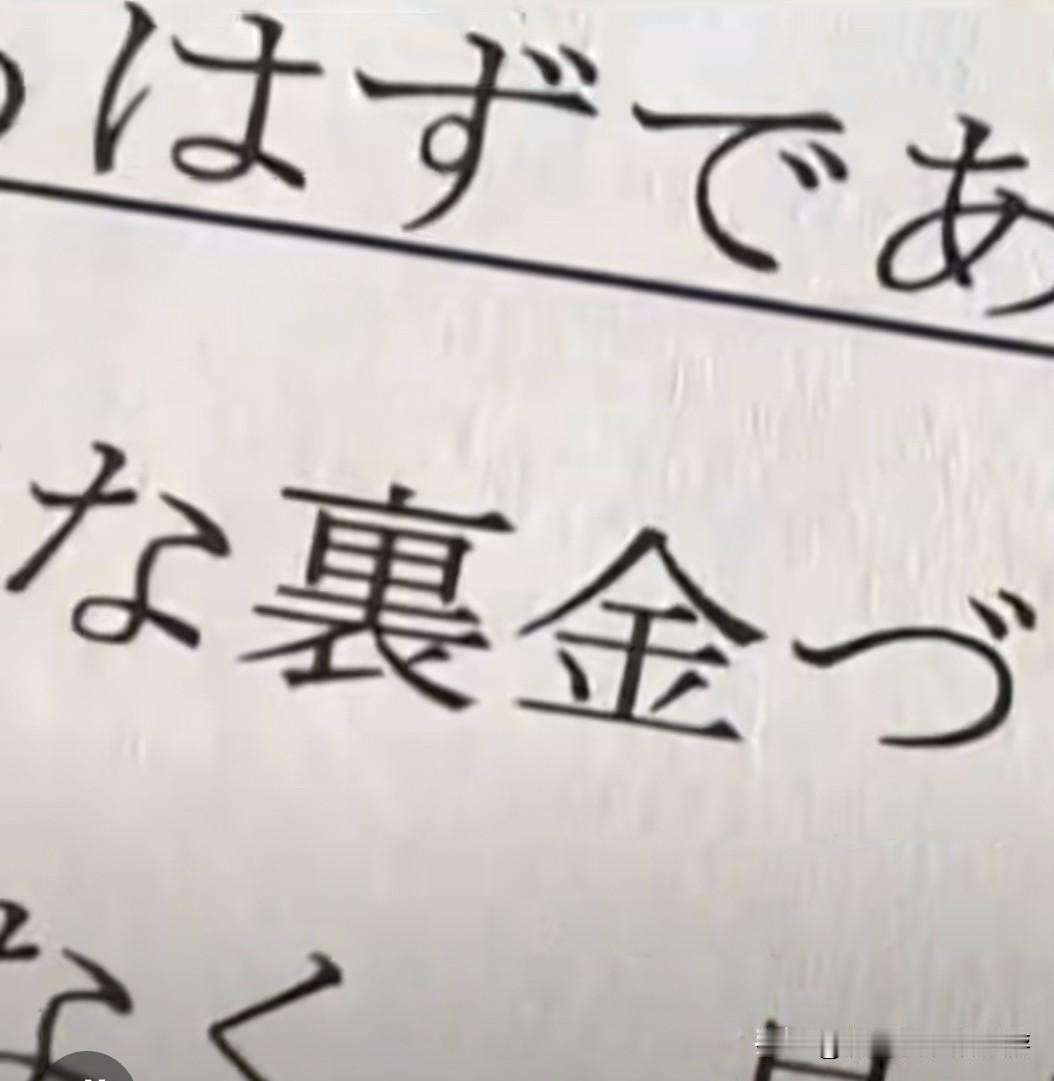 はずであ
な裏金づ
なく